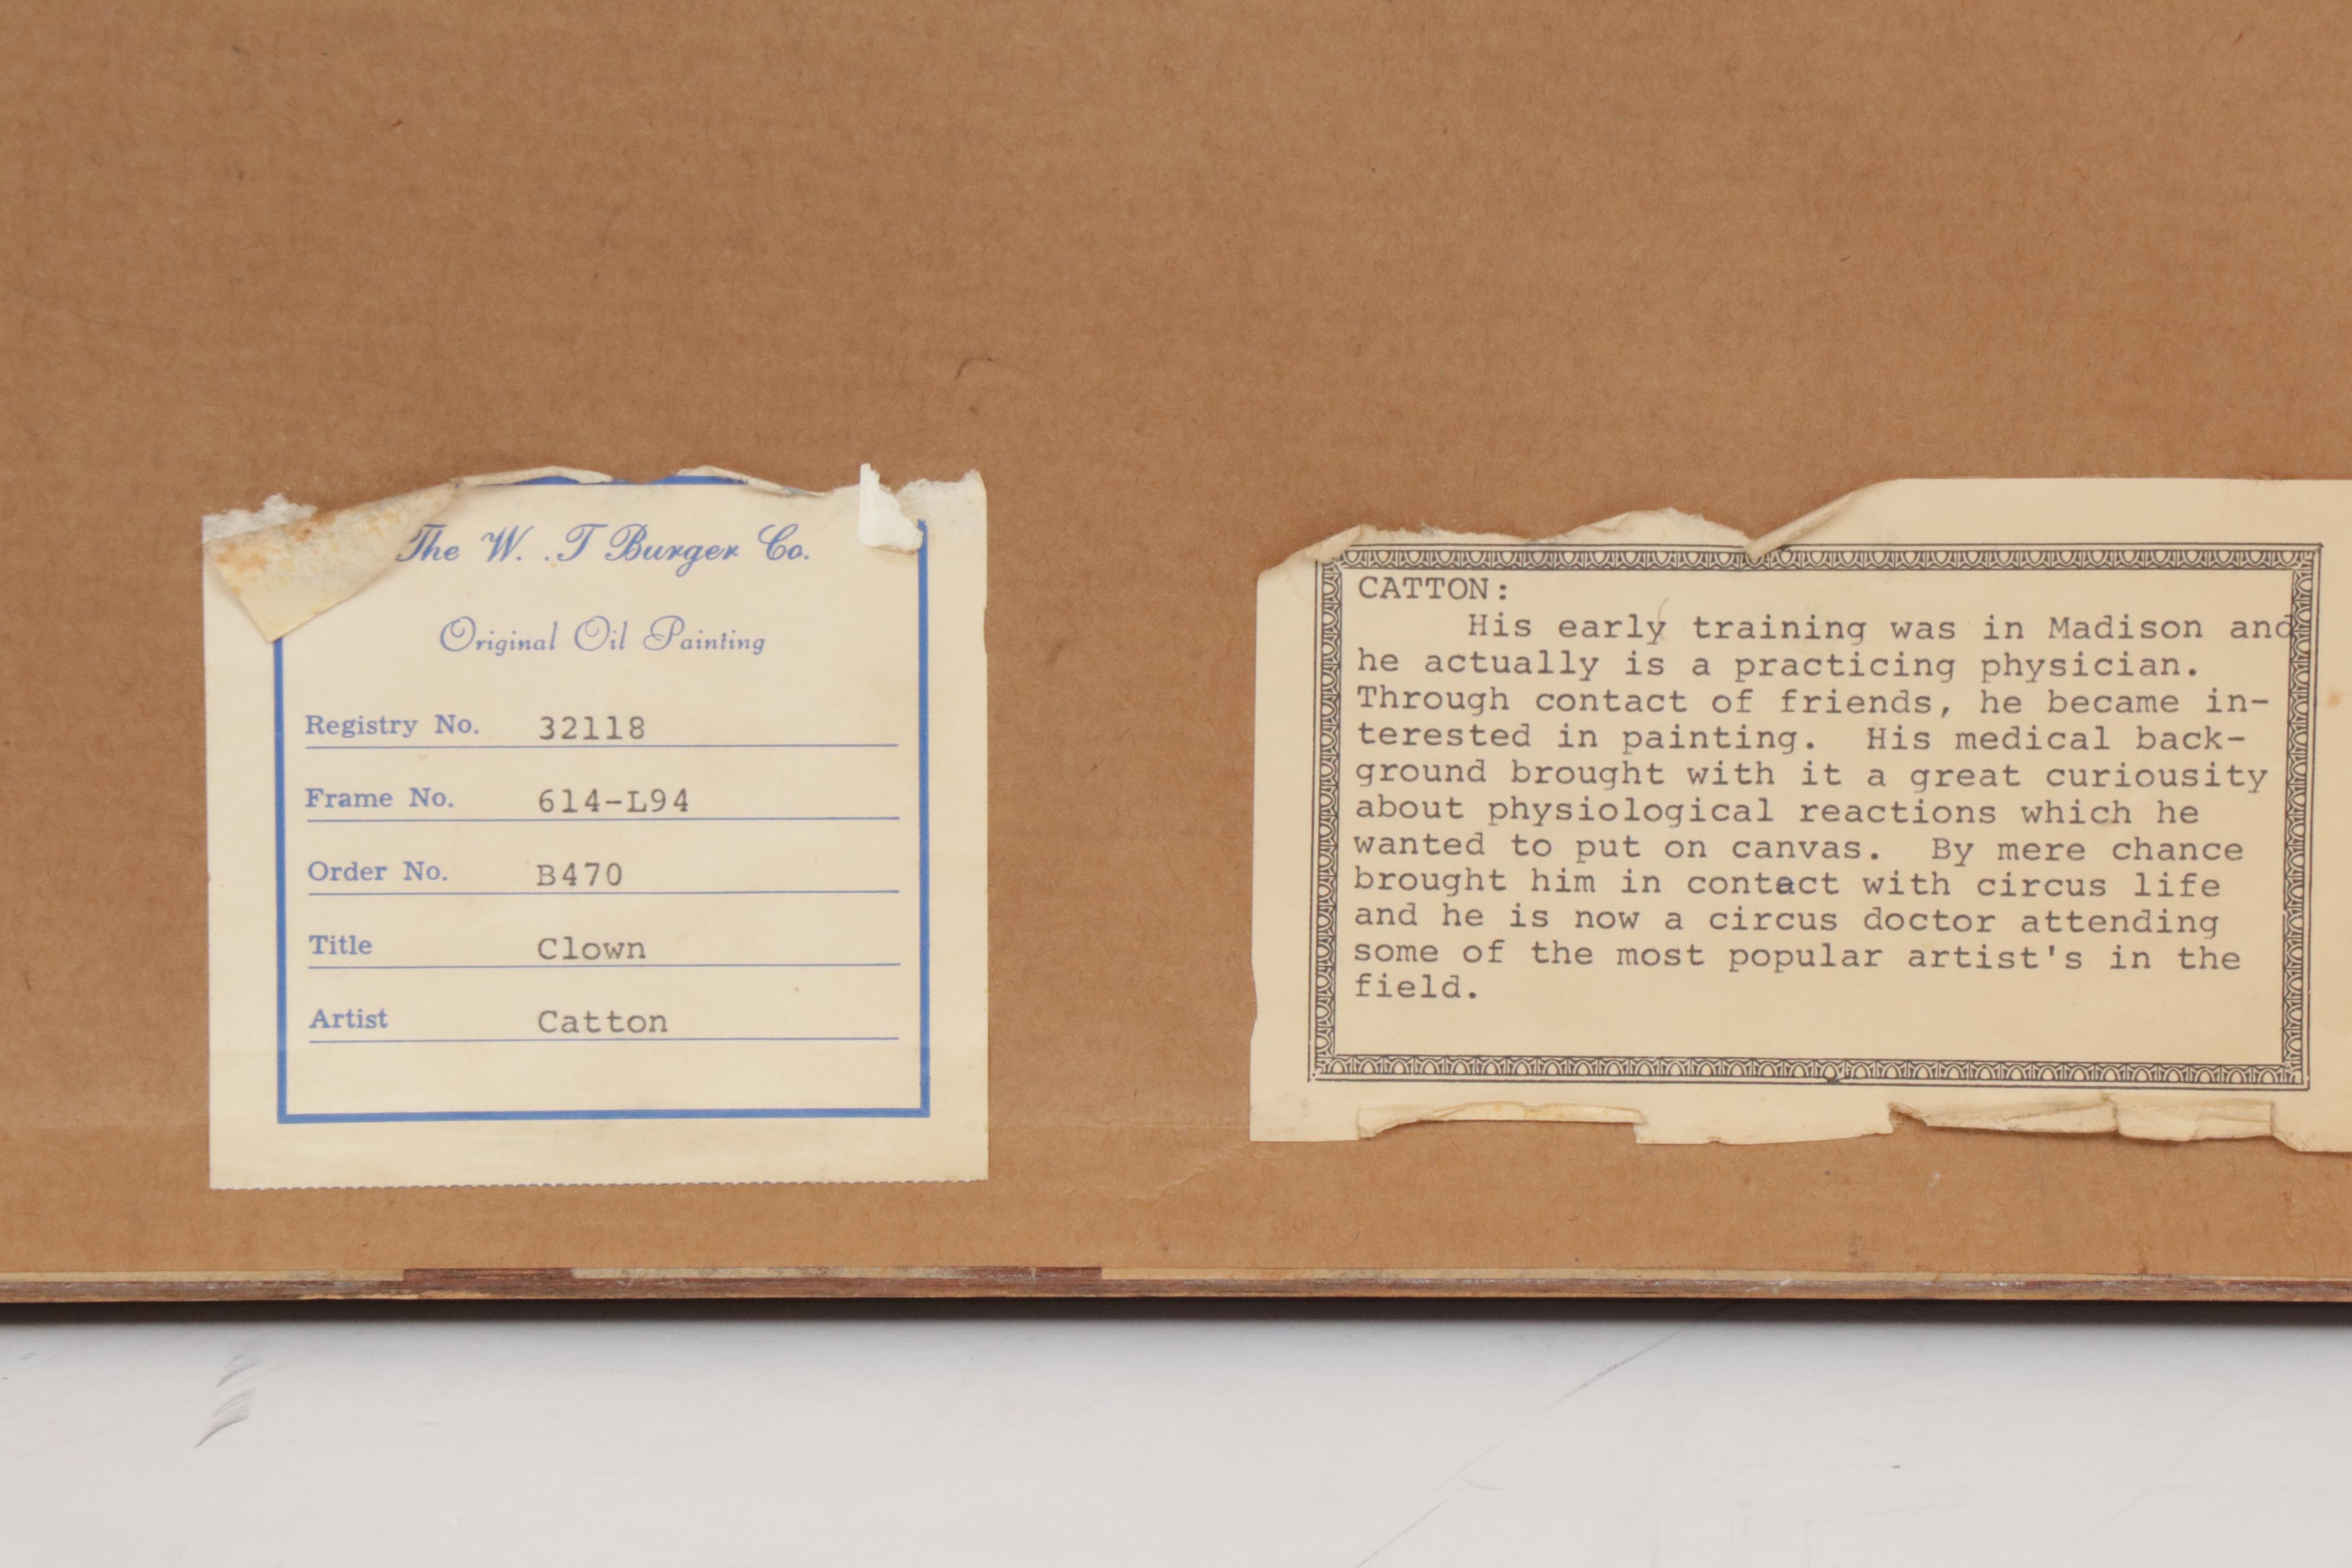 The W. .T Burger Co.
Original Oil Painting
Registry No. 32118
Frame No. 614-L94
Order No. B470
Title Clown
Artist Catton
CATTON:
His early training was in Madison and
he actually is a practicing physician.
Through contact of friends, he became in-
terested in painting. His medical back-
ground brought with it a great curiousity
about physiological reactions which he
wanted to put on canvas. By mere chance
brought him in contact with circus life
and he is now a circus doctor attending
some of the most popular artist's in the
field.